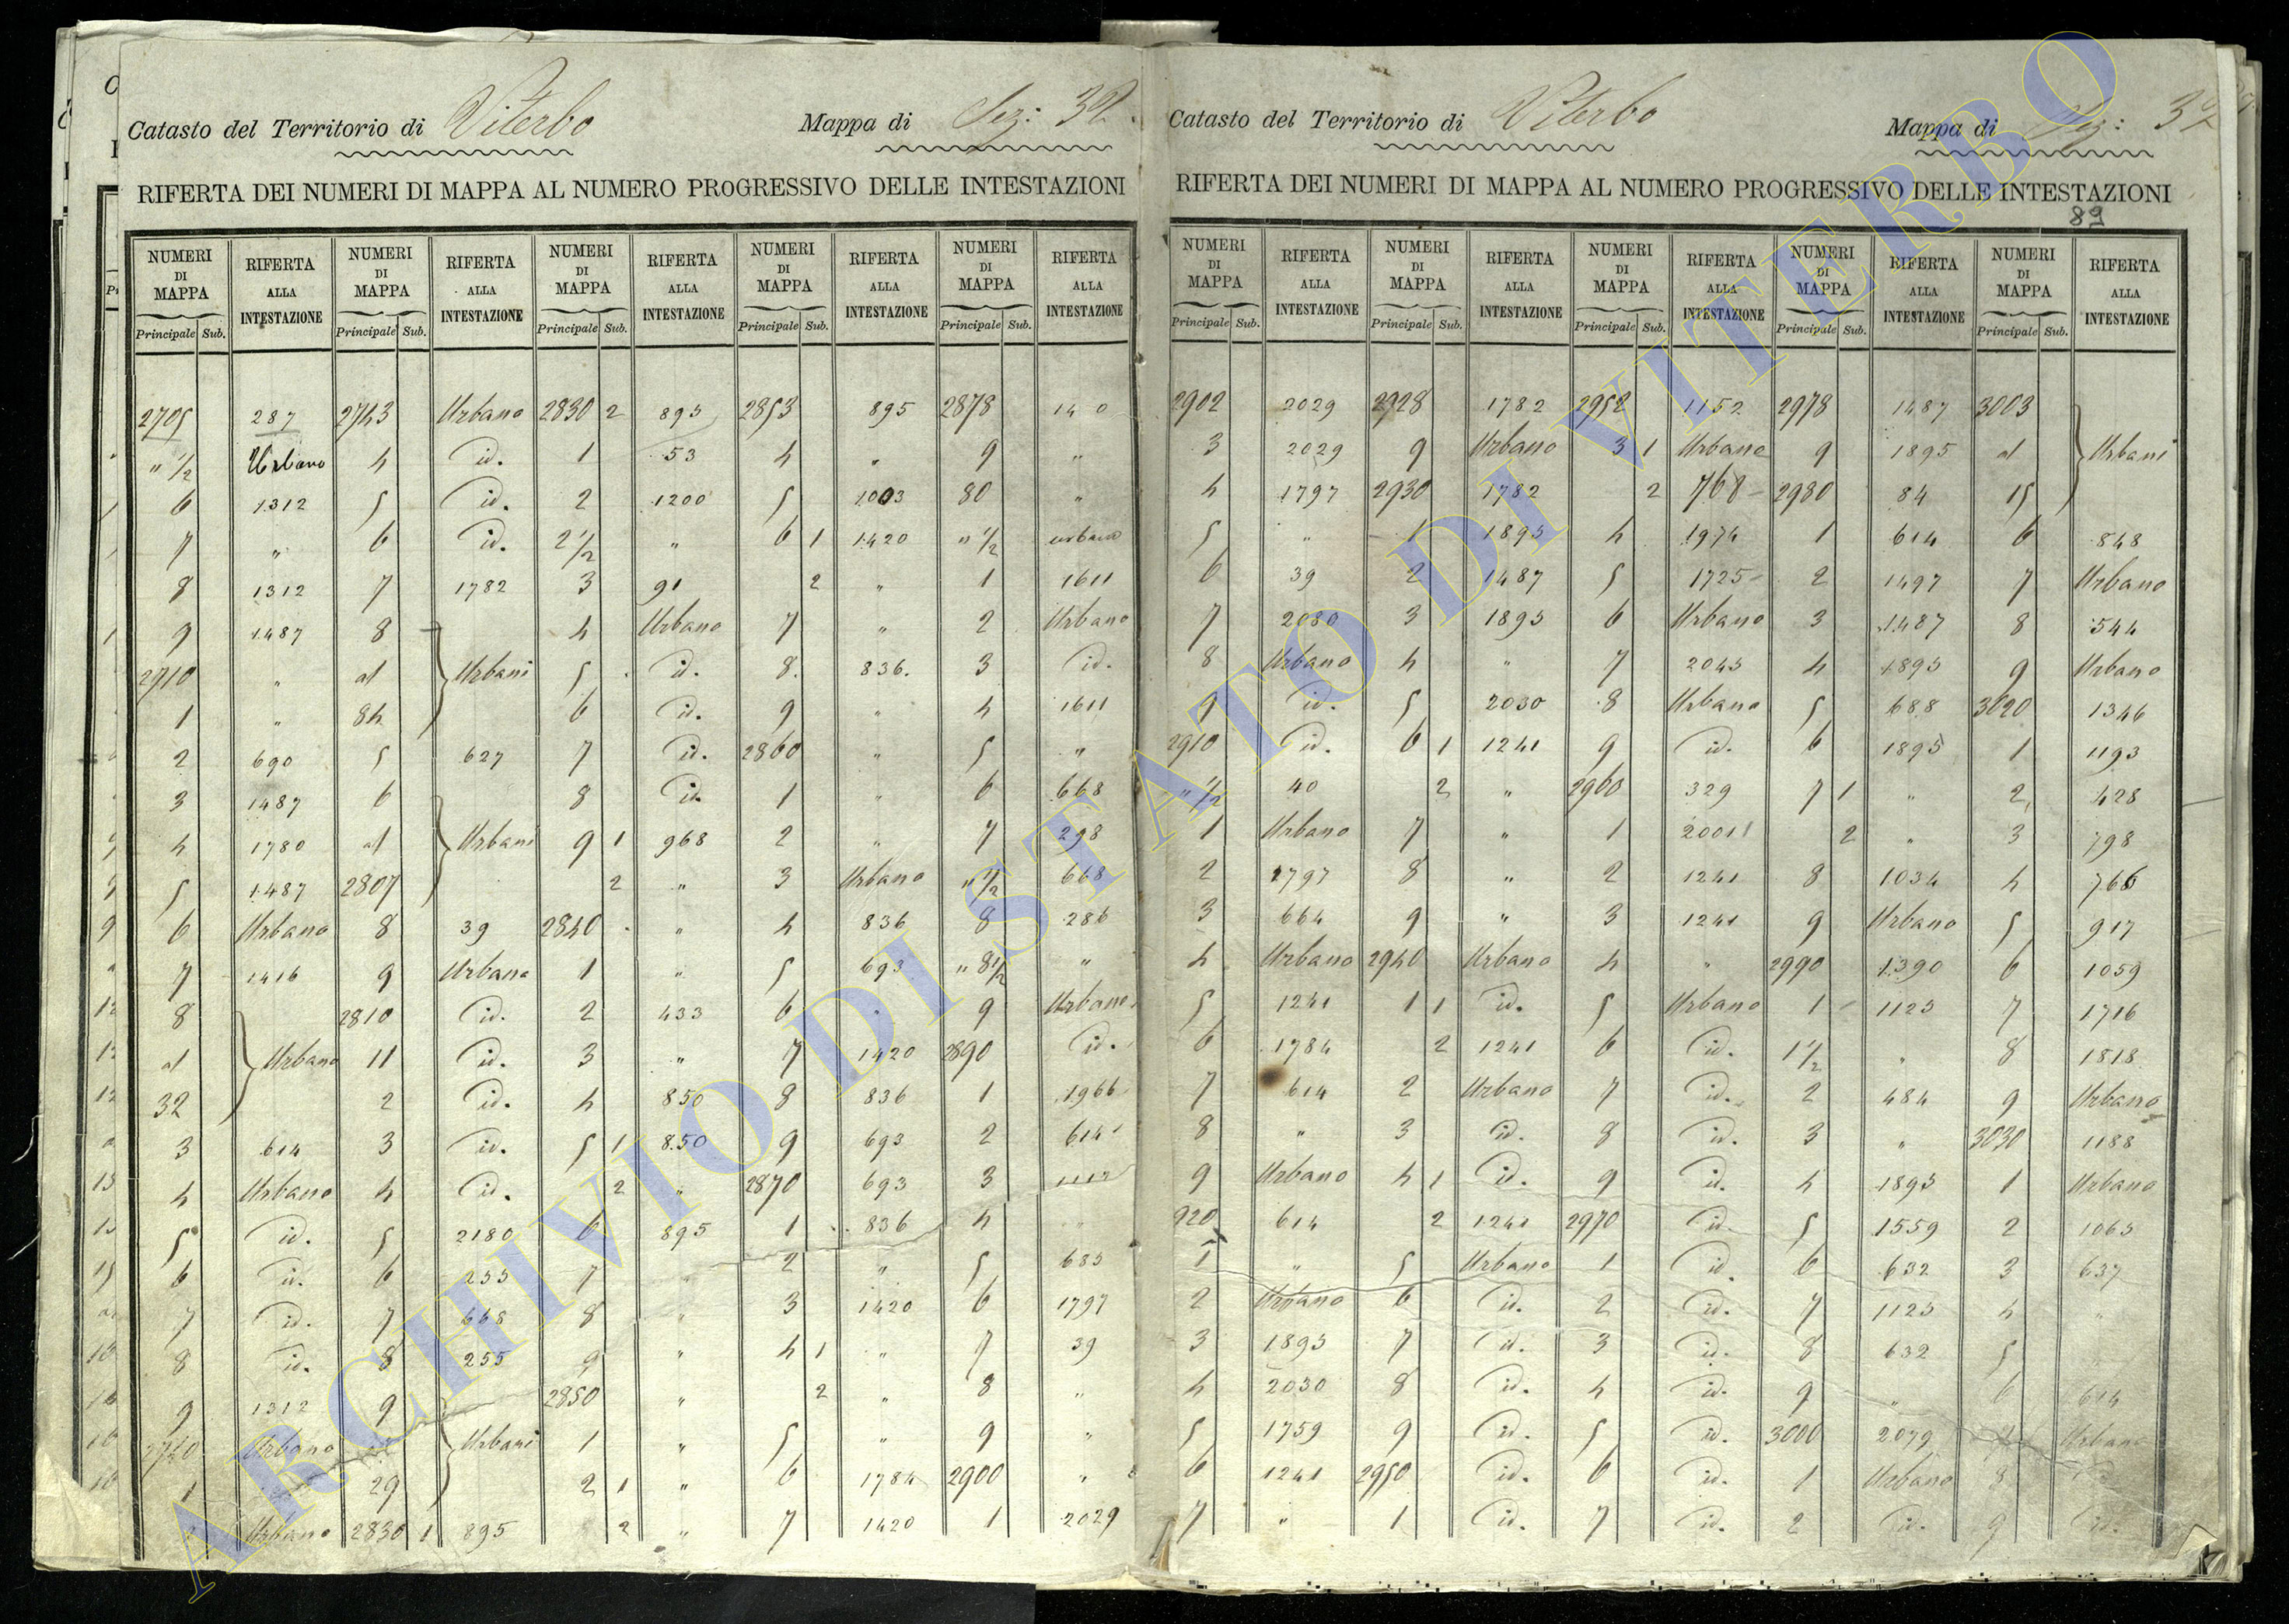 Catasto del Territorio di Viterbo Mappa di Sez: 32.
RIFERTA DEI NUMERI DI MAPPA AL NUMERO PROGRESSIVO DELLE INTESTAZIONI
NUMERI DI MAPPA RIFERTA ALLA INTESTAZIONE NUMERI DI MAPPA RIFERTA ALLA INTESTAZIONE NUMERI DI MAPPA RIFERTA ALLA INTESTAZIONE NUMERI DI MAPPA RIFERTA ALLA INTESTAZIONE NUMERI DI MAPPA RIFERTA ALLA INTESTAZIONE
Principale Sub. Principale Sub. Principale Sub. Principale Sub. Principale Sub.
2705 287 2743 Urbano 2830 2 895 2853 895 2878 140
" 1/2 Urbano 4 id. 1 53 4 " 9 "
6 1312 5 id. 2 1200 5 1003 80 "
7 " 6 id. 2 1/2 " 6 1 1420 " 1/2 urbano
8 1312 7 1782 3 91 2 " 1 1611
9 1487 8 4 Urbano 7 " 2 Urbano
2710 " al Urbani 5 id. 8 836. 3 id.
1 " 84 6 id. 9 " 4 1611
2 690 5 627 7 id. 2860 " 5 "
3 1487 6 8 id. 1 " 6 668
4 1780 al Urbani 9 1 968 2 " 7 298
5 1487 2807 2 " 3 Urbano " 1/2 668
6 Urbano 8 39 2840 " 4 836 8 286
7 1416 9 Urbano 1 " 5 693 " 8 1/2 "
8 2810 id. 2 433 6 " 9 Urbano
al Urbano 11 id. 3 " 7 1420 2890 id.
32 2 id. 4 850 8 836 1 1966
3 614 3 id. 5 1 850 9 693 2 614
4 Urbano 4 id. 2 " 2870 693 3 1112
5 id. 5 2180 6 895 1 836 4 "
6 id. 6 255 7 " 2 " 5 685
7 id. 7 668 8 " 3 1420 6 1797
8 id. 8 255 9 " 4 1 " 7 39
9 1312 9 2850 " 2 " 8 "
2740 Urbano Urbani 1 " 5 " 9 "
1 29 2 1 " 6 1784 2900 "
Urbano 2830 1 895 2 " 7 1420 1 2029
Catasto del Territorio di Viterbo Mappa di Sez: 32
RIFERTA DEI NUMERI DI MAPPA AL NUMERO PROGRESSIVO DELLE INTESTAZIONI
89
NUMERI DI MAPPA RIFERTA ALLA INTESTAZIONE NUMERI DI MAPPA RIFERTA ALLA INTESTAZIONE NUMERI DI MAPPA RIFERTA ALLA INTESTAZIONE NUMERI DI MAPPA RIFERTA ALLA INTESTAZIONE NUMERI DI MAPPA RIFERTA ALLA INTESTAZIONE
Principale Sub. Principale Sub. Principale Sub. Principale Sub. Principale Sub.
2902 2029 2928 1782 2952 1152 2978 1487 3003
3 2029 9 Urbano 3 1 Urbano 9 1895 al Urbani
4 1797 2930 1782 2 768 2980 84 15
5 " 1 1895 4 1974 1 614 6 848
6 39 2 1487 5 1725 2 1497 7 Urbano
7 2080 3 1895 6 Urbano 3 1487 8 544
8 Urbano 4 " 7 2045 4 1895 9 Urbano
9 id. 5 2030 8 Urbano 5 688 3020 1346
2910 id. 6 1 1241 9 id. 6 1895 1 1193
" 1/2 40 2 " 2960 329 7 1 " 2 428
1 Urbano 7 " 1 2001 2 " 3 798
2 1797 8 " 2 1241 8 1034 4 766
3 664 9 " 3 1241 9 Urbano 5 917
4 Urbano 2940 Urbano 4 " 2990 1390 6 1059
5 1241 1 1 id. 5 Urbano 1 1123 7 1716
6 1784 2 1241 6 id. 1 1/2 " 8 1818
7 614 2 Urbano 7 id. 2 484 9 Urbano
8 " 3 id. 8 id. 3 " 3030 1188
9 Urbano 4 1 id. 9 id. 4 1895 1 Urbano
920 614 2 1241 2970 id. 5 1559 2 1065
1 " 5 Urbano 1 id. 6 632 3 637
2 Urbano 6 id. 2 id. 7 1123 4 "
3 1895 7 id. 3 id. 8 632 5
4 2030 8 id. 4 id. 9 " 6 614
5 1759 9 id. 5 id. 3000 2079 7 Urbano
6 1241 2950 id. 6 id. 1 Urbano 8
7 " 1 id. 7 id. 2 id. 9 id.
ARCHIVIO DI STATO DI VITERBO